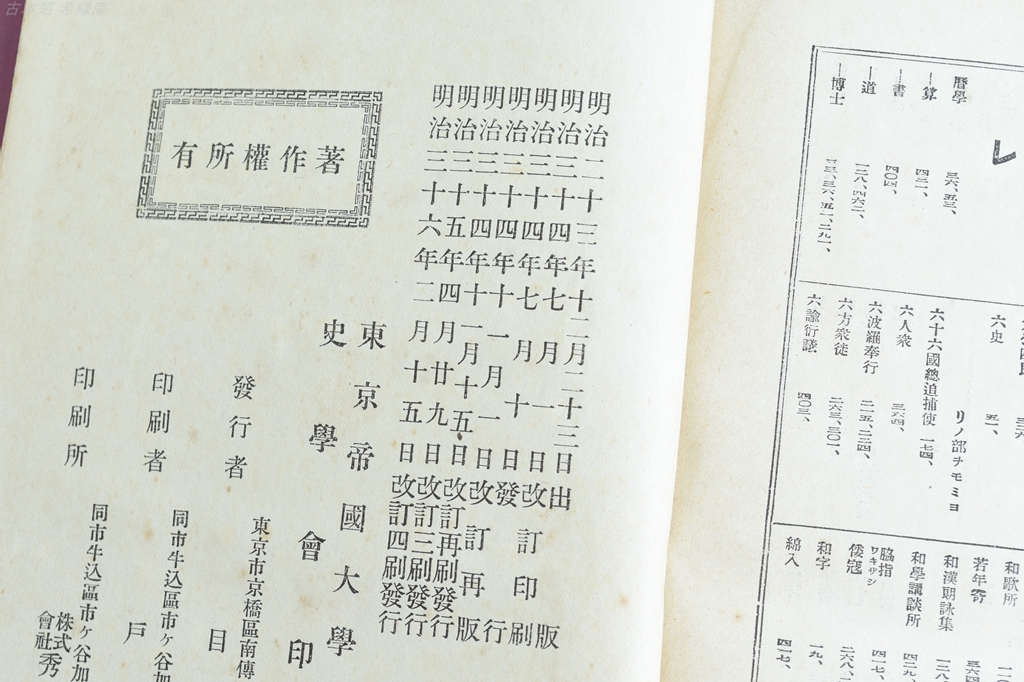 レ
曆學 三六、五三、
―算 四三一、
―書 四〇四、
―道 一二八、四六二、
―博士
六史 五一、
リノ部ヲモミヨ
六十六國總追捕使 一七四、
六人衆 三六四、
六波羅奉行 二一五、二三四、
六方衆徒 二六三、三〇一、
六諭衍義 四〇三、
和歌所
若年寄
和漢朗詠集
和學講談所
脇指
ワキザシ
倭寇
和字 一九、
綿入 四一七、
明治二十三年十二月二十三日出版
明治三十四年七月一日改訂印刷
明治三十四年七月十日發行
明治三十四年十一月一日改訂再版
明治三十四年十一月十五日改訂再刷發行
明治三十五年四月廿九日改訂三刷發行
明治三十六年二月十五日改訂四刷發行
著作權所有
東京帝國大學
史學會印
發行者
東京市京橋區南傳
目
印刷者
同市牛込區市ヶ谷加
戶
印刷所
同市牛込區市ヶ谷加
株式會社秀